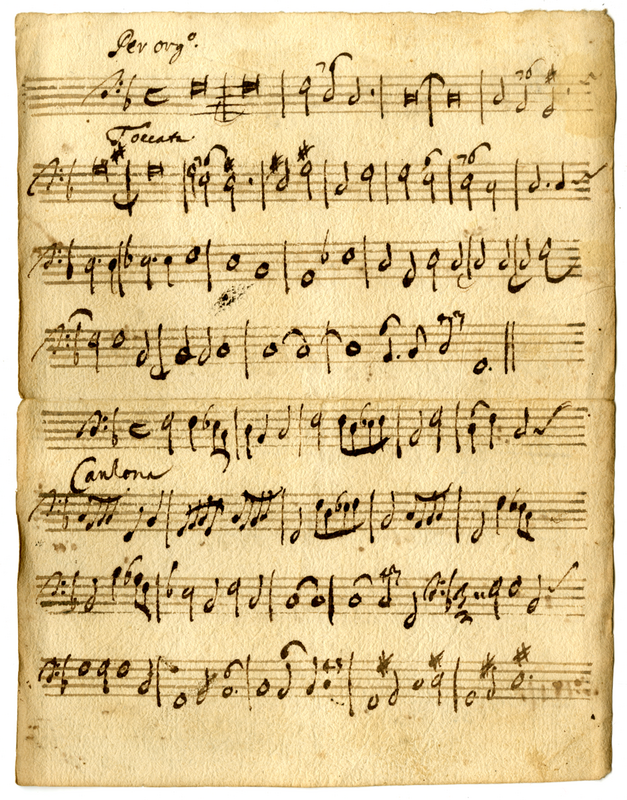 Per orgº.
Toccata
Canzona